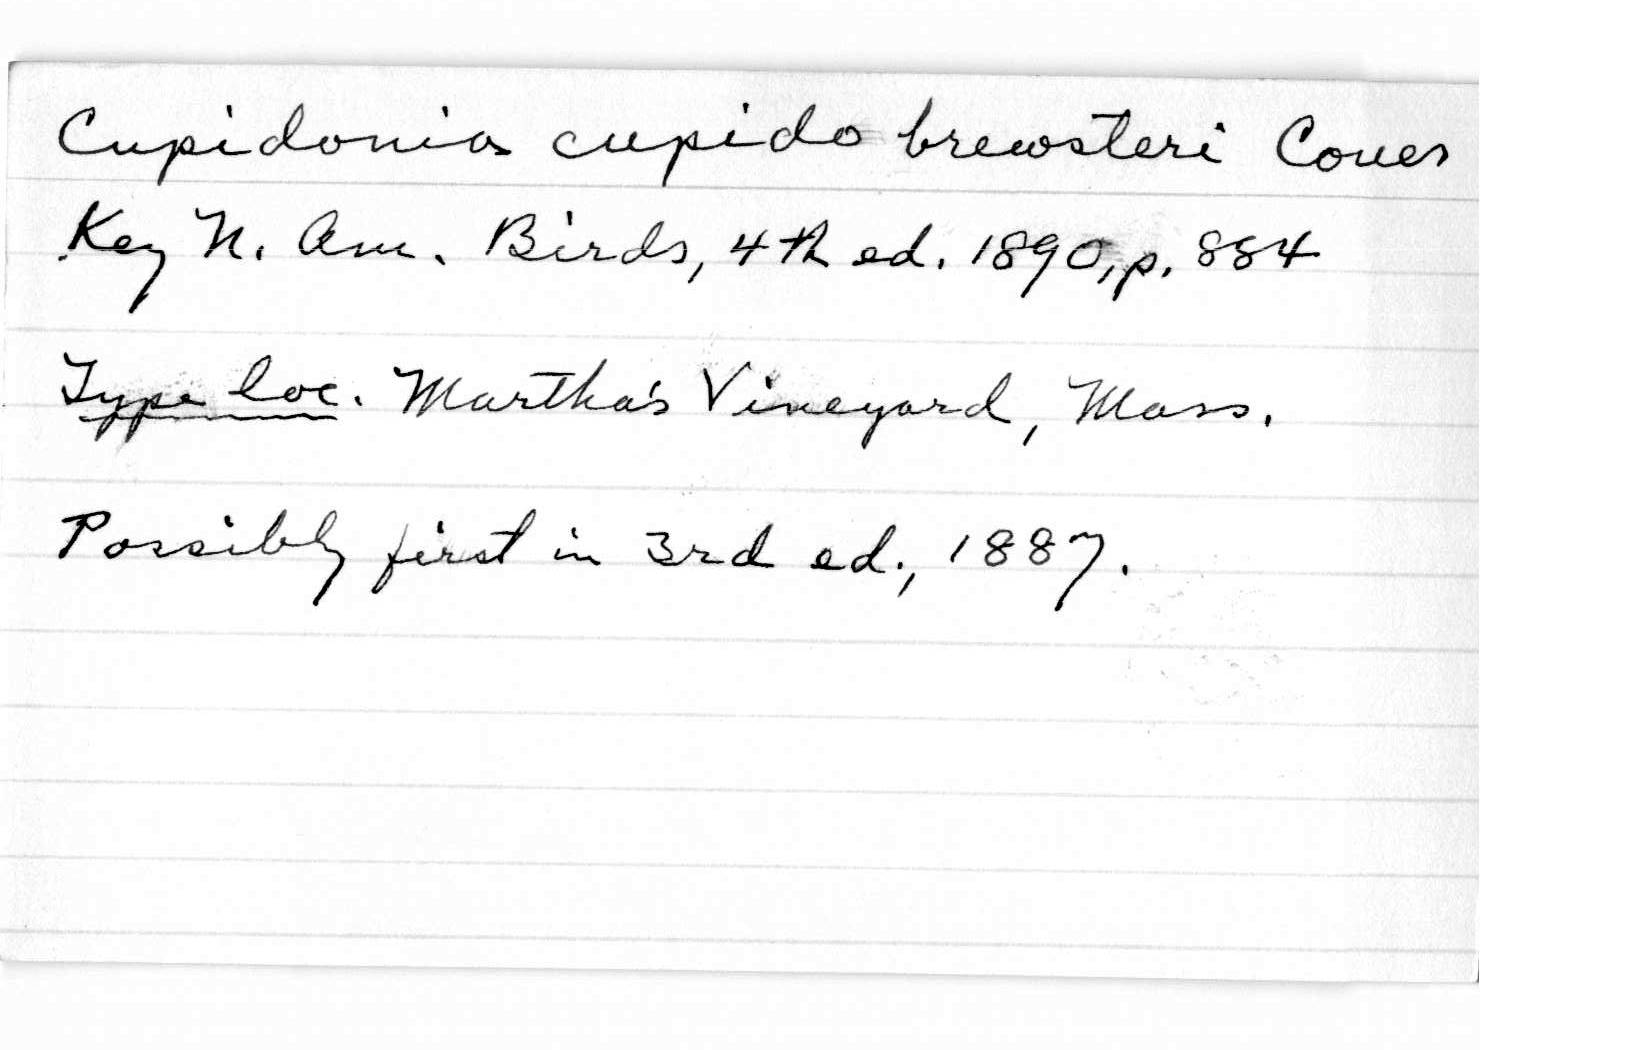 Cupidonia cupido brewsteri Coues
Key N. Am. Birds, 4th ed. 1890, p. 884
Type loc. Martha's Vineyard, Mass.
Possibly first in 3rd ed., 1887.